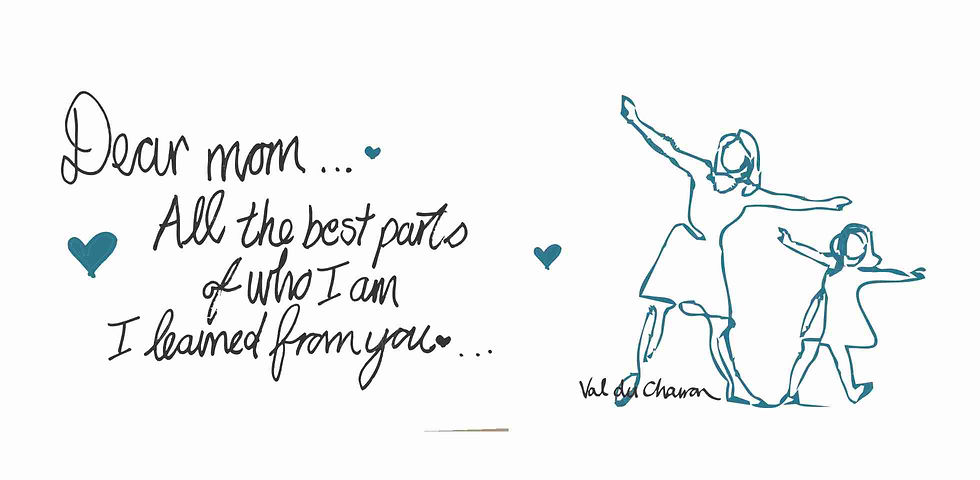 Dear mom...
All the best parts
of who I am
I learned from you...
Val du Chairon